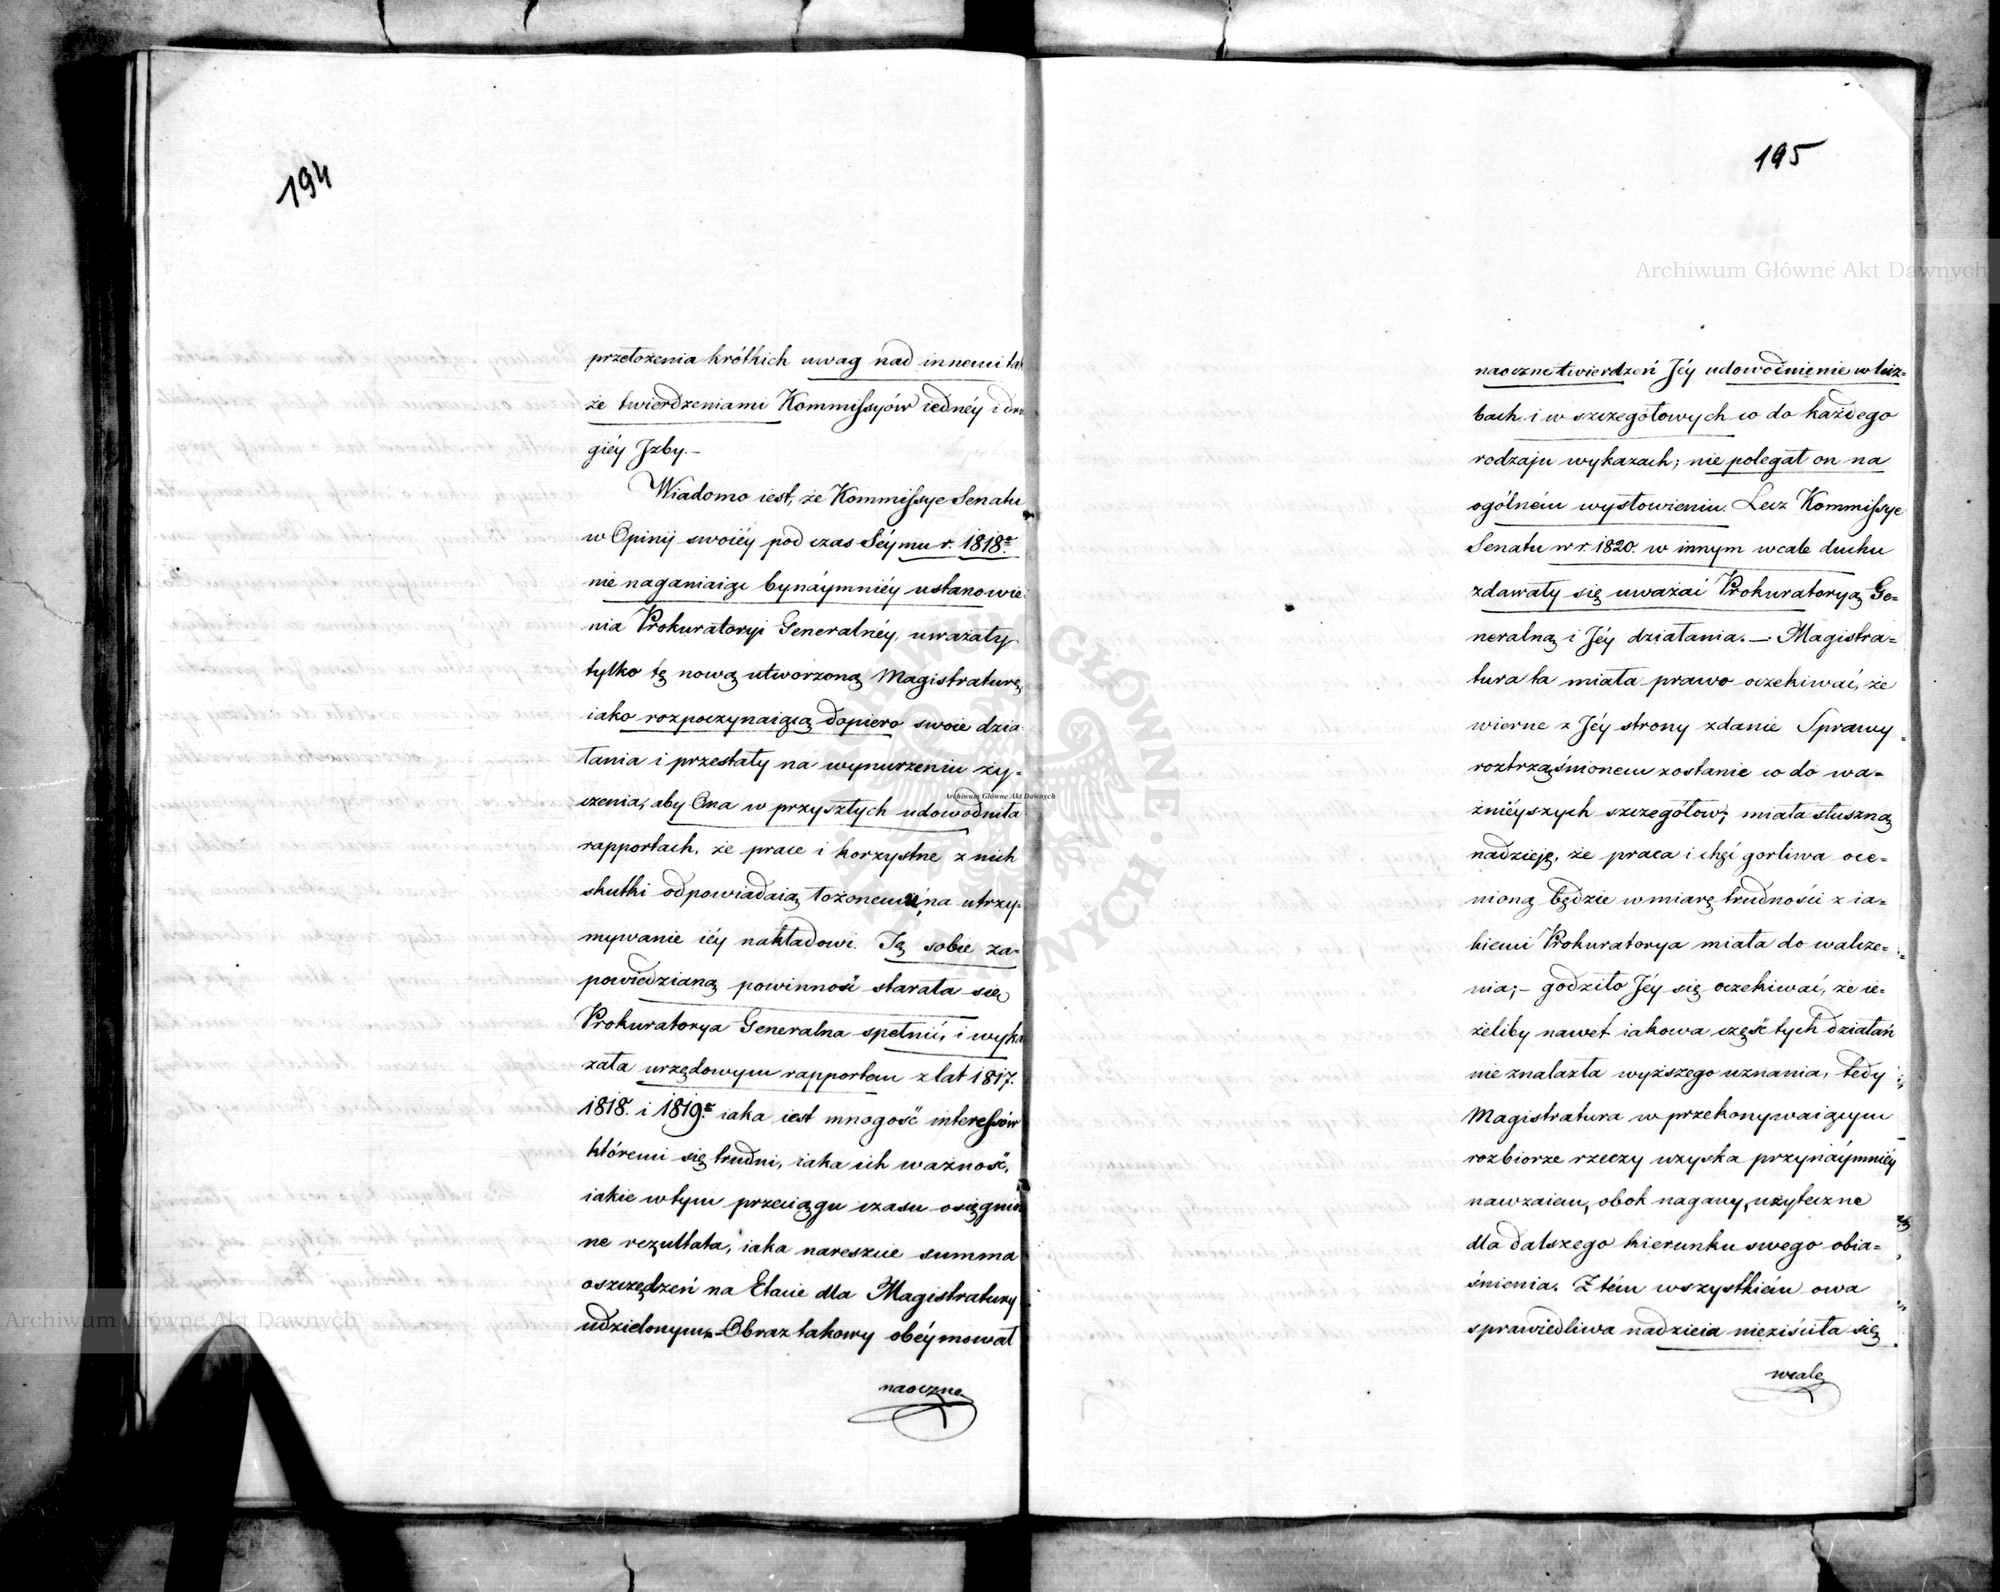 194
przełożenia krótkich uwag nad innemi tak
że twierdzeniami Kommissyów iednéy i dru
giéy Jzby.–
Wiadomo iest, że Kommissye Senatu
w Opinij swoiéy pod czas Séymu r. 1818º
nie naganiaiąc bynáymniéy ustanowie
nia Prokuratoryi Generalnéy, uważały
tylko tę nową utworzoną Magistraturę,
iako rozpoczynaiącą dopiero swoie dzia
łania i przestały na wynurzeniu ży=
czenia, aby Ona w przyszłych udowodniła
rapportach, że prace i korzystne z nich
skutki odpowiadaią łożonemu, na utrzy=
mywanie iéy nakładowi. Tę sobie za=
powiedzianą powinność starała się
Prokuratorya Generalna spełnić, i wyka
zała urzędowym rapportem z lat 1817.
1818. i 1819º iaka iest mnogość interessów
któremi się trudni, iaka ich ważność,
iakie w tym przeciągu czasu osiągnio
ne rezultata, iaka nareszcie summa
oszczędzeń na Etacie dla Magistratury
udzielonym.– Obraz takowy obéymował
naoczne
195
naoczne twierdzeń Jéy udowodnienie w licz=
bach i w szczegółowych co do każdego
rodzaju wykazach; nie polegał on na
ogólném wysłowieniu. Lecz Kommissye
Senatu w r. 1820. w innym wcale duchu
zdawały się uważać Prokuratoryą Ge=
neralną i Jéy działania.– Magistra=
tura ta miała prawo oczekiwać, że
wierne z Jéy strony zdanie Sprawy
roztrząśnionem zostanie co do wa=
żniéyszych szczegółow; miała słuszną
nadzieję, że praca i chęć gorliwa oce=
nioną będzie w miarę trudności z ia=
kiemi Prokuratorya miała do walcze=
nia;– godziło Jéy się oczekiwać, że ie=
żeliby nawet iakowa część tych działań
nie znalazła wyższego uznania, tedy
Magistratura w przekonywaiącym
rozbiorze rzeczy uzyska przynáymniéy
nawzaiem, obok nagany, użyteczne
dla dalszego kierunku swego obia=
śnienia. Z tém wszystkiém owa
sprawiedliwa nadzieia nieziściła się
wcale
Archiwum Główne Akt Dawnych
Archiwum Główne Akt Dawnych
Archiwum Główne Akt Dawnych